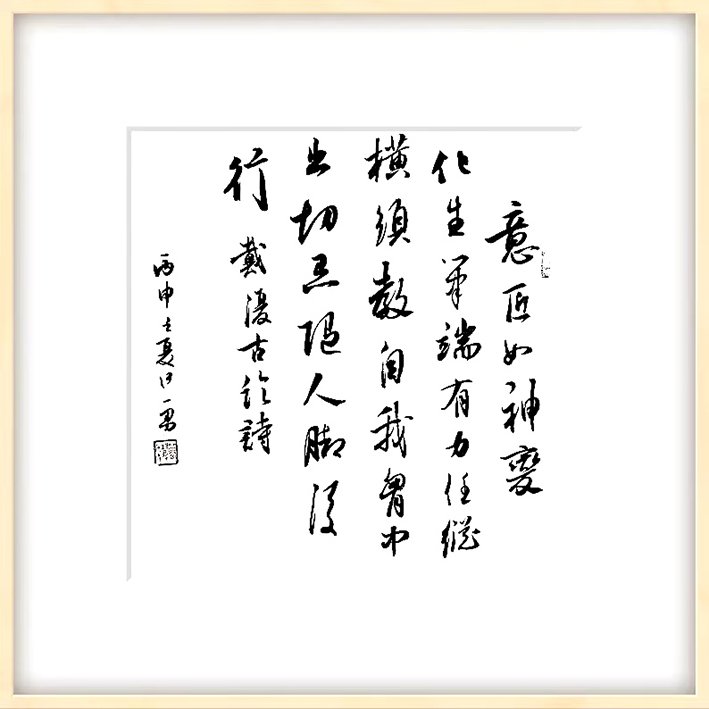 意匠如神變
化生筆端有力任縱
橫須教自我胷中
出切忌隨人腳後
行 戴復古論詩
丙申夏